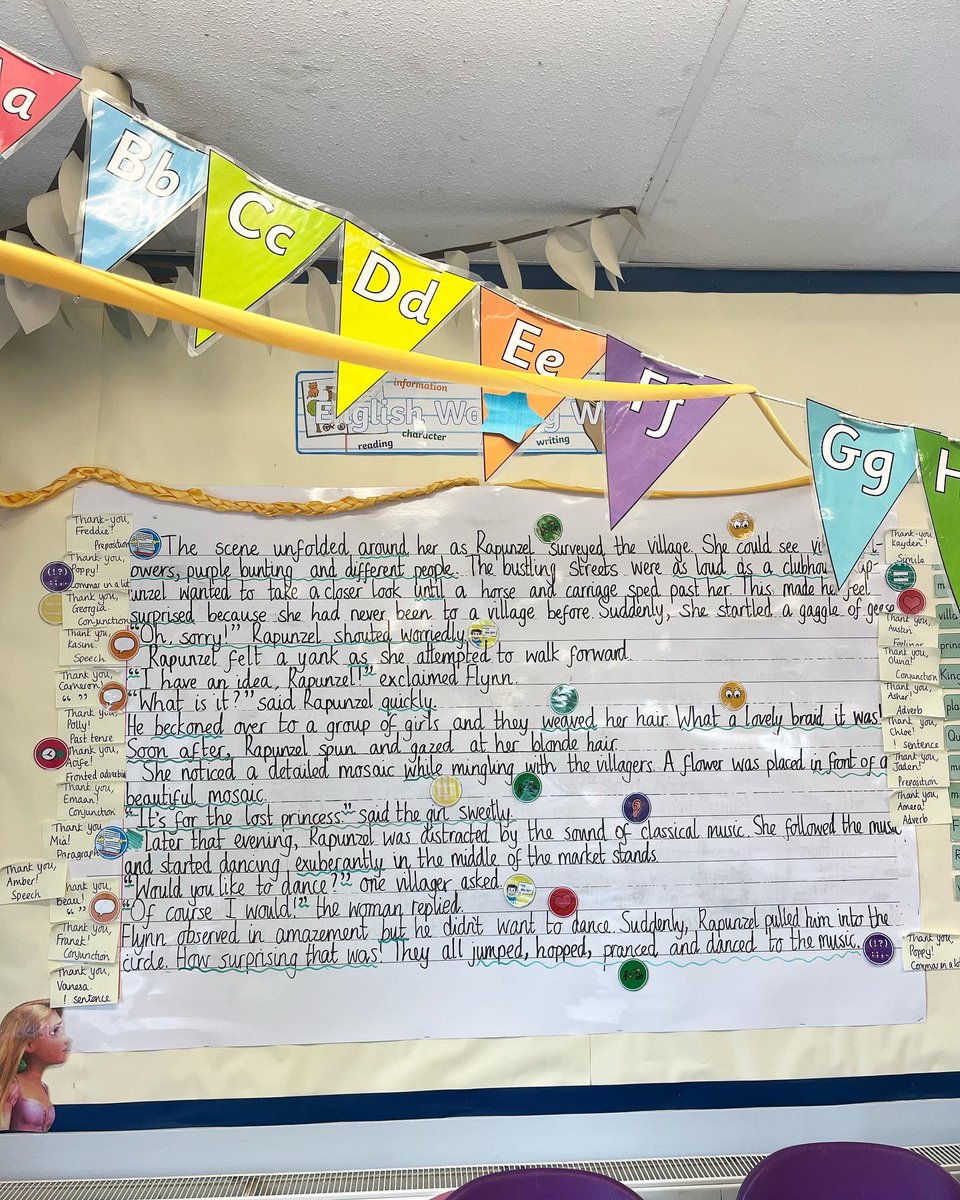 a
Bb
Cc
Dd
Ee
Ff
Gg
H
information
English Wo W
reading
character
writing
The scene unfolded around her as Rapunzel surveyed the village. She could see
owers, purple bunting and different people. The bustling streets were as loud as a
unzel wanted to take a closer look until a horse and carriage sped past her. This made he feel
surprised because she had never been to a village before. Suddenly, she startled a gaggle of geese
"Oh, sorry!" Rapunzel shouted worriedly.
Rapunzel felt a yank as she attempted to walk forward.
"I have an idea, Rapunzel!" exclaimed Flynn.
"What is it?" said Rapunzel quickly.
He beckoned over to a group of girls and they weaved her hair. What a lovely braid it was!
Soon after, Rapunzel spun and gazed at her blonde hair.
She noticed a detailed mosaic while mingling with the villagers. A flower was placed in front of a
beautiful mosaic.
"It's for the lost princess" said the girl sweetly.
Later that evening, Rapunzel was distracted by the sound of classical music. She followed the
and started dancing exuberantly in the middle of the market stands.
"Would you like to dance?" one villager asked.
"Of course I would!" the woman replied.
Flynn observed in amazement but he didn't want to dance. Suddenly, Rapunzel pulled him into the
circle. How surprising that was! They all jumped, hopped, pranced, and danced to the music.
Thank-you,
Freddie!
Preposition
Thank-you,
Poppy!
commas in a list
Thank you,
Georgia
Conjunction
Thank you,
Kasim.
Speech
Thank you,
Cameron
" "
Thank you,
Polly
Past tense
Thank you,
Aoife!
Fronted
Thank you,
Emaan!
Conjunction
Thank you
Mia!
Paragraph
Thank you,
Amber!
Speech
hank you,
Beau!
" "
Thank you,
Franet!
Conjunction
Thank you,
Vanesa.
! sentence
Thank-you
Kayden!
Simile
Thank you,
Austin.
Thank you,
Olivia!
Conjunction
Thank you,
Asher!
Adverb
Thank you,
Chloe!
! sentence
Thank you,
Jaden!
Preposition
Thank you,
Amera!
Adverb
Thank you,
Poppy!
Commas in a list
(!?)
(!?)